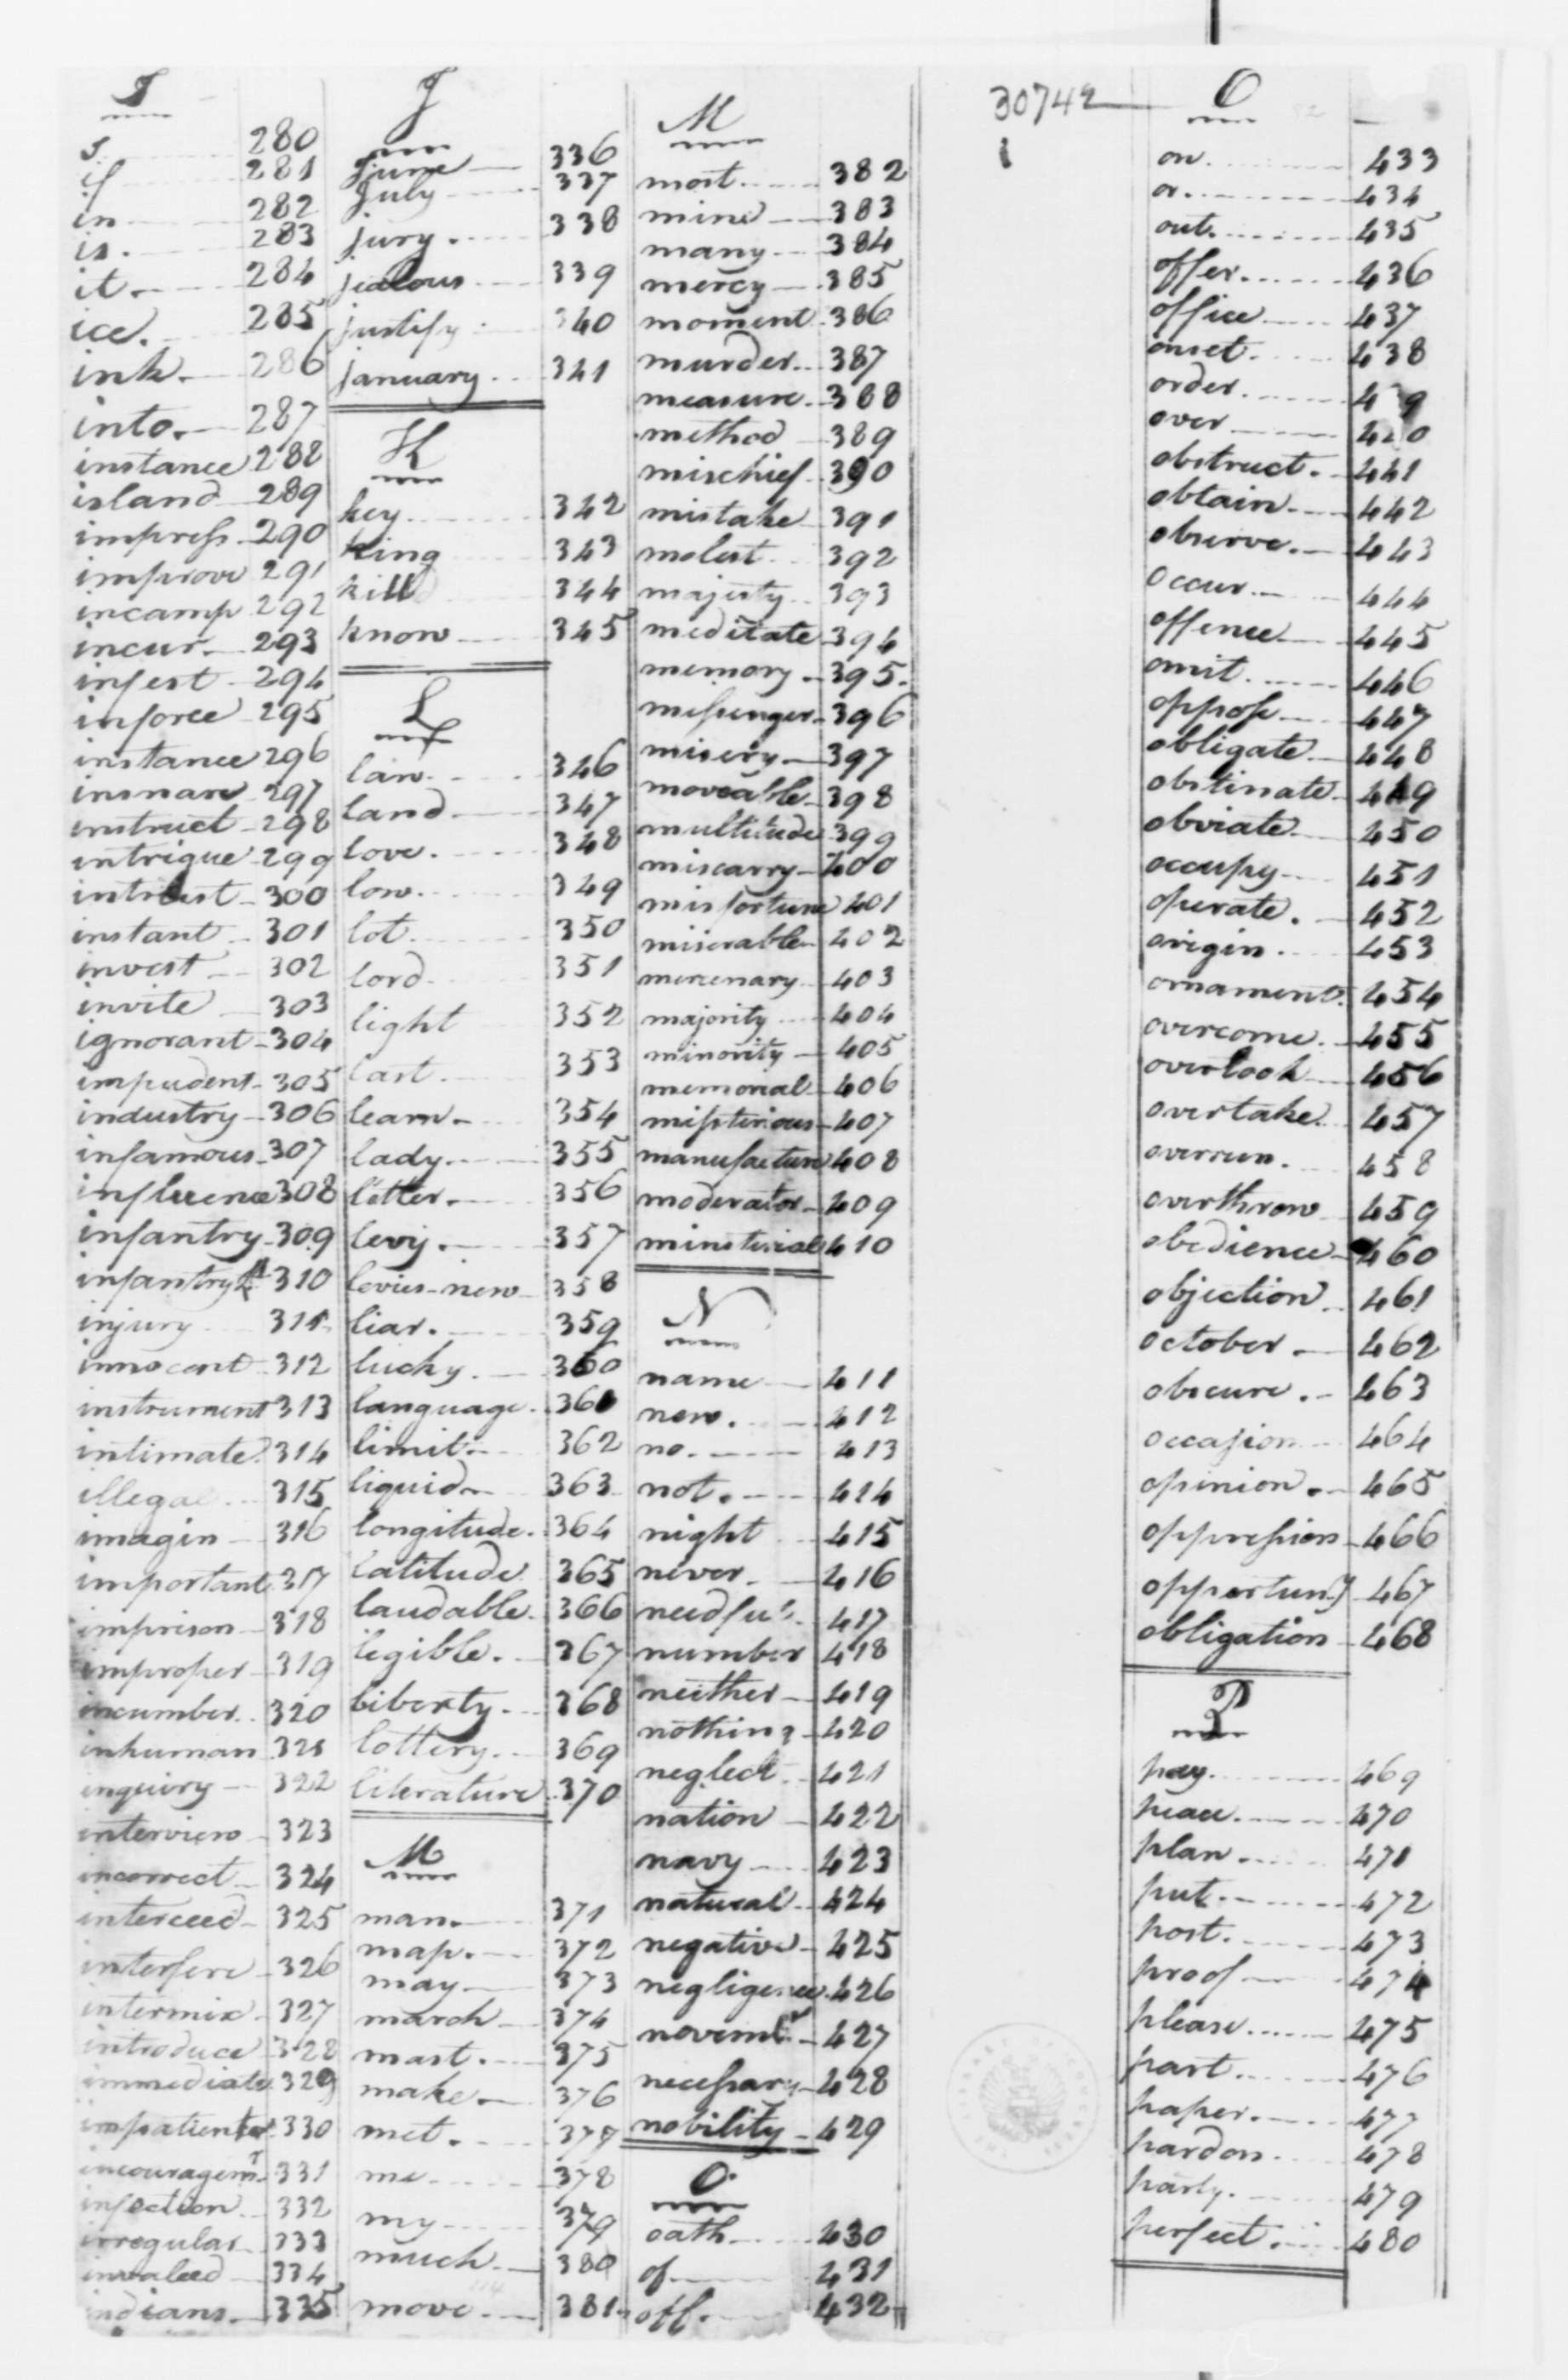 I
I 280
if 281
in 282
is 283
it 284
ice. 285
ink 286
into. 287
instance 288
island 289
impress 290
improve 291
incamp 292
incur. 293
infest 294
inforce 295
instance 296
insnare 297
instruct 298
intrigue 299
intrust 300
instant 301
invest 302
invite 303
ignorant 304
impudent 305
industry 306
infamous 307
influence 308
infantry 309
infantry 310
injury 311
innocent 312
instrument 313
intimate 314
illegal 315
imagin 316
important 317
imprison 318
improper 319
incumber 320
inhuman 321
inquiry 322
interview 323
incorrect 324
interceed 325
interfere 326
intermix 327
introduce 328
immediate 329
impatient 330
incouragemt 331
infection 332
irregular 333
invaleed 334
indians 335
J
june 336
July 337
jury. 338
jealous 339
justify 340
january 341
K
key 342
king 343
kill 344
know 345
L
law 346
land 347
love. 348
low. 349
lot 350
lord 351
light 352
last 353
learn 354
lady. 355
letter. 356
levy. 357
levies-new 358
liar. 359
lucky. 360
language. 361
limit 362
liquid 363
longitude. 364
latitude 365
laudable. 366
legible. 367
liberty. 368
lottery. 369
literature 370
M
man. 371
map. 372
may 373
march 374
mast. 375
make. 376
met. 377
me 378
my 379
much 380
move 381
M
most 382
mine 383
many 384
mercy 385
moment 386
murder 387
measure 388
method 389
mischief 390
mistake 391
molest 392
majesty 393
meditate 394
memory 395
messenger 396
misery 397
moveable 398
multitude 399
miscarry 400
misfortune 401
miserable 402
mercenary 403
majority 404
minority 405
memorial 406
misterious 407
manufacture 408
moderator 409
ministerial 410
N
name 411
new. 412
no 413
not. 414
night 415
never 416
needful 417
number 418
neither 419
nothing 420
neglect 421
nation 422
navy 423
natural 424
negative 425
negligence 426
novembr 427
necessary 428
nobility 429
O.
oath 430
of 431
off. 432
30742
1
O
on 433
or 434
out. 435
offer 436
office 437
onset 438
order 439
over 440
obstruct. 441
obtain 442
observe. 443
occur 444
offence 445
omit 446
oppose 447
obligate 448
obstinate 449
obviate 450
occupy 451
operate. 452
origin 453
ornament. 454
overcome. 455
overlook 456
overtake. 457
overrun. 458
overthrow 459
obedience 460
objection 461
october 462
obscure. 463
occasion 464
opinion. 465
oppression 466
opportuny 467
obligation 468
P
pay. 469
peace 470
plan. 471
put. 472
post. 473
proof 474
please 475
part 476
paper. 477
pardon 478
party. 479
perfect. 480